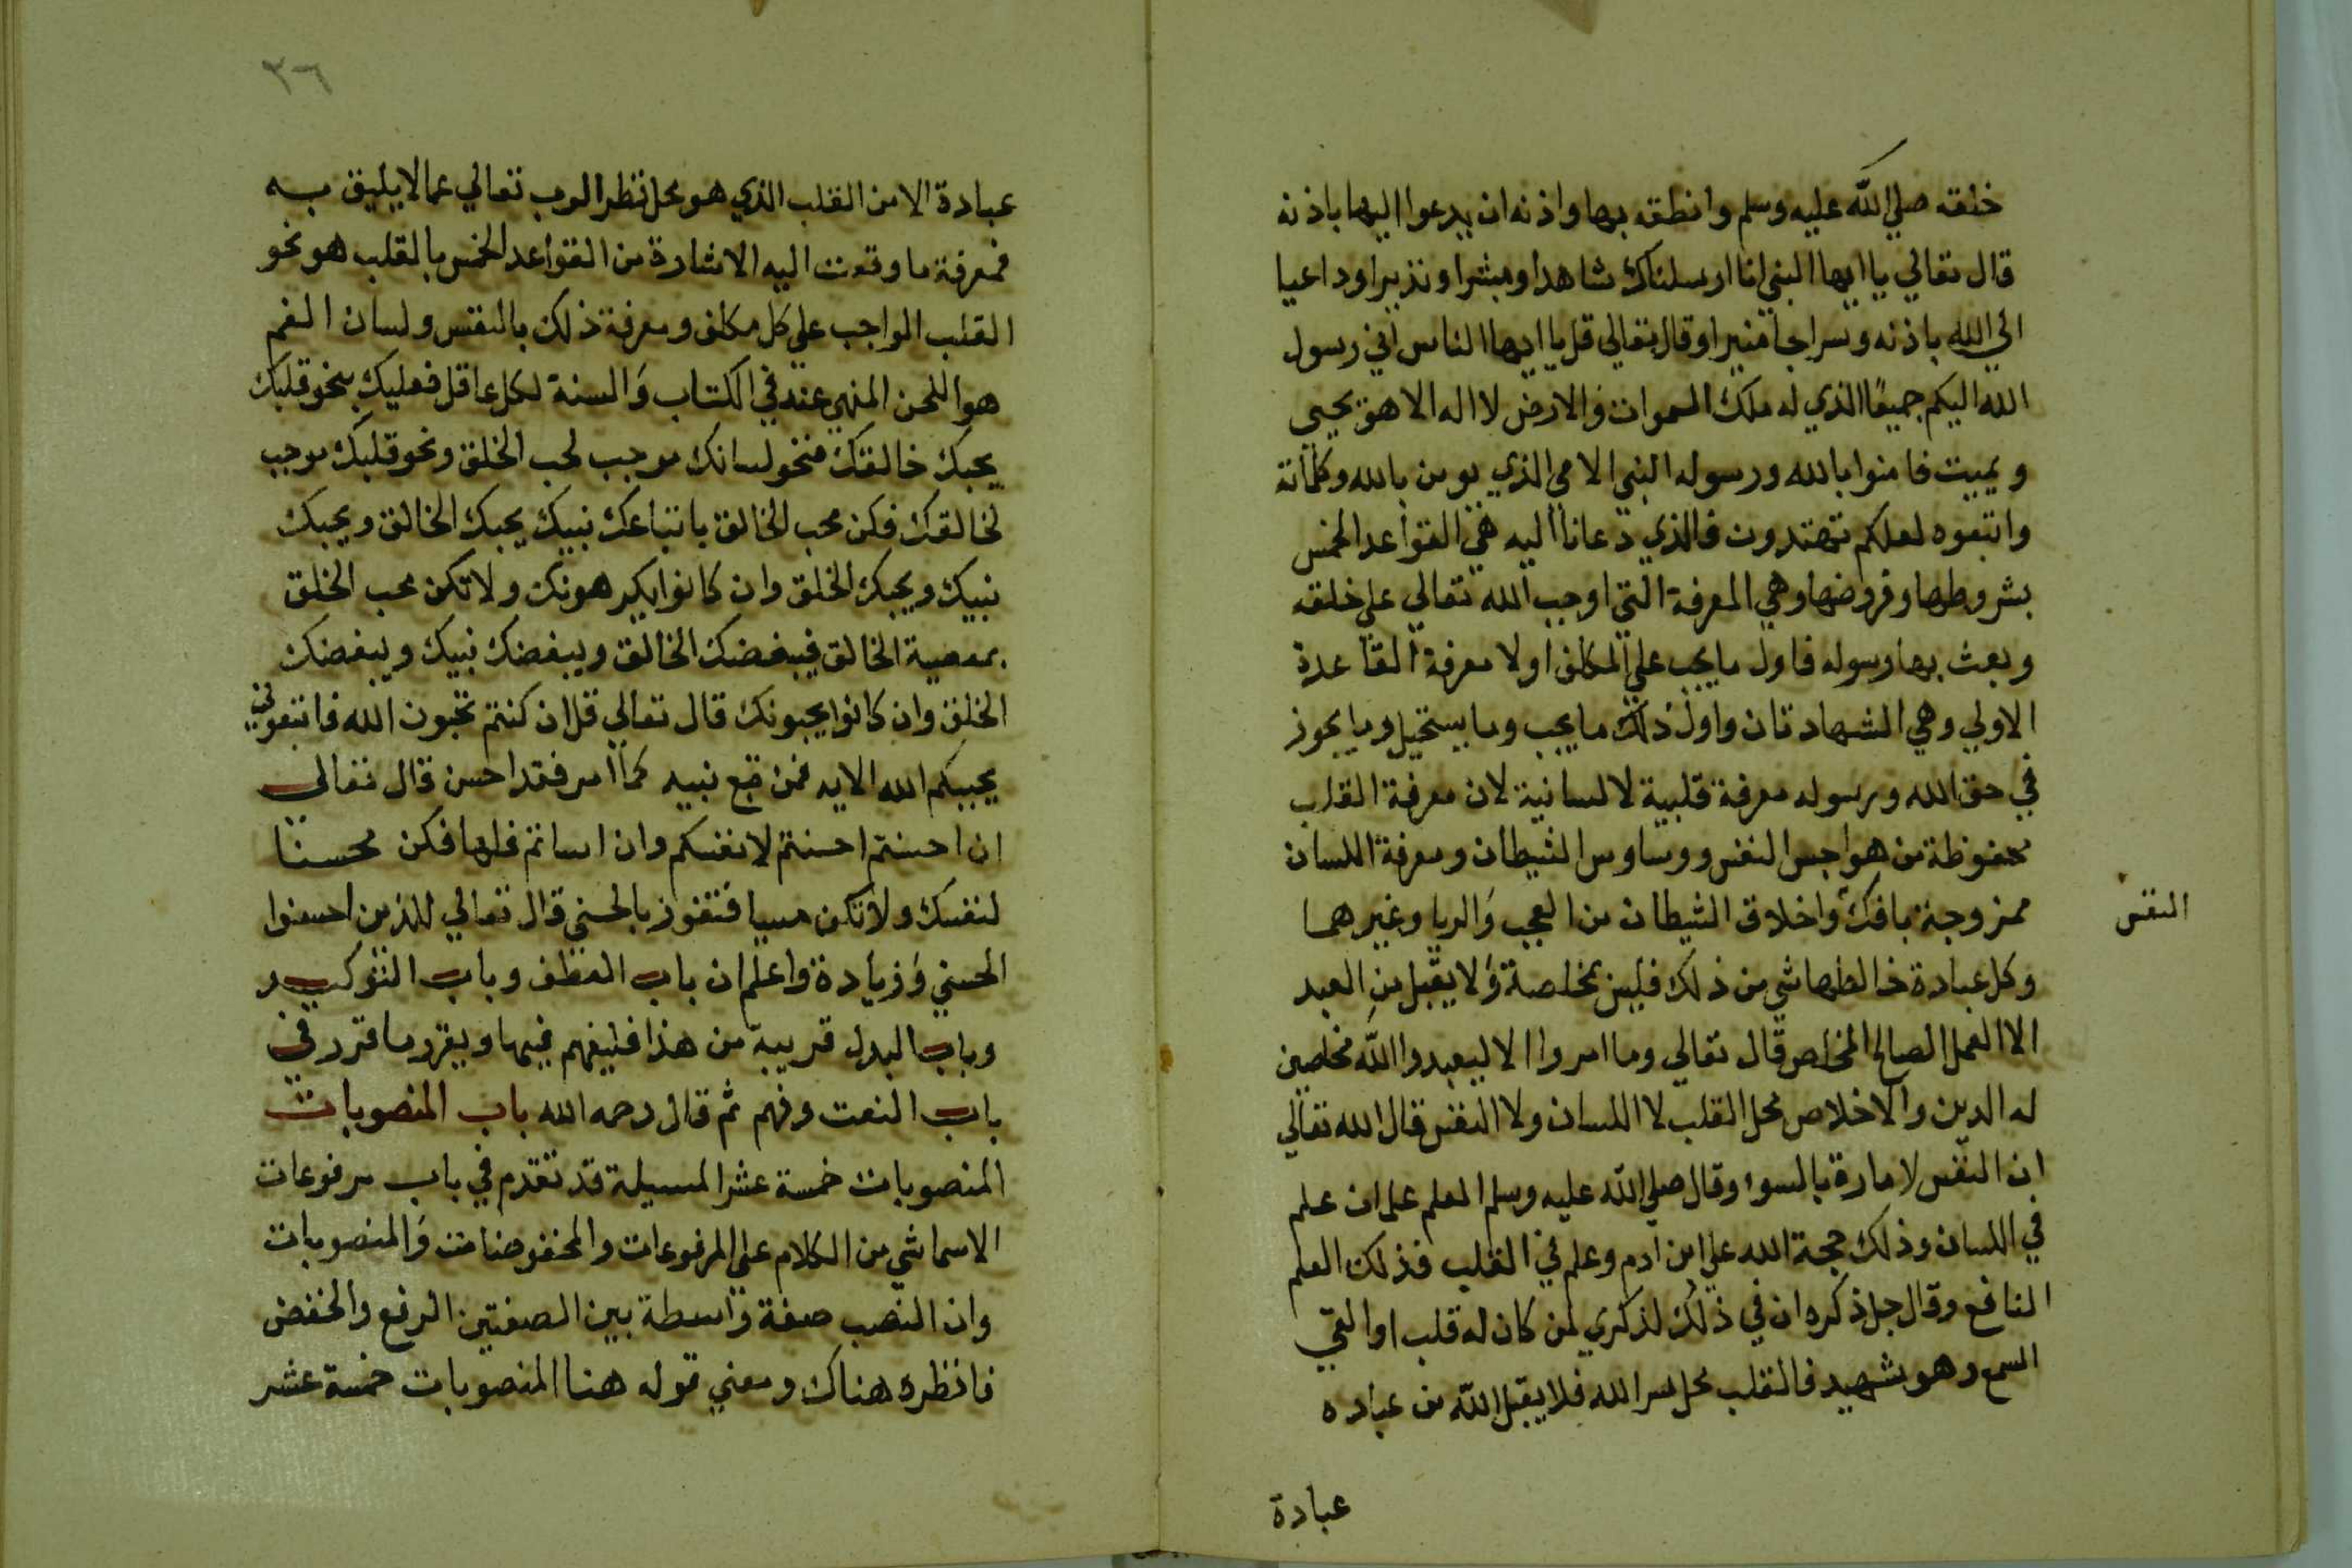 خلقه صلي الله عليه وسلم وانطقه بها واذنه ان يدعوا اليها باذنه
قال تعالي يا ايها النبي انا ارسلناك شاهدا ومبشرا ونذيرا وداعيا
الي الله باذنه وسراجا منيرا وقال تعالي قل يا ايها الناس اني رسول
الله اليكم جميعًا الذي له ملك السموات والارض لا اله الا هو يحيي
ويميت فامنوا بالله ورسوله النبي الامي الذي يومن بالله وكلماته
واتبعوه لعلكم تهتدون فالذي دعانا اليه هي القواعد الخمس
بشروطها وفروضها وهي المعرفة التي اوجب الله تعالي علي خلقه
وبعث بها رسوله فاول ما يجب علي المكلف اولا معرفة القاعدة
الاولي وهي الشهادتان واول ذلك ما يجب وما يستحيل وما يجوز
في حق الله ورسوله معرفة قلبية لا لسانية لان معرفة القلب
محفوظة من هواجس النفس ووساوس الشيطان ومعرفة اللسان
ممزوجة بافك واخلاق الشيطان من العجب والريا وغيرهما
النفس
وكل عبادة خالطها شي من ذلك فليس بخلصة ولا يقبل من العبد
الا العمل الصالح المخلص قال تعالي وما امروا الا ليعبدوا الله مخلصين
له الدين والاخلاص محل القلب لا اللسان ولا النفس قال الله تعالي
ان النفس لامارة بالسوء وقال صلي الله عليه وسلم العلم علمان علم
في اللسان وذلك حجة الله علي ابن ادم وعلم في القلب فذلك العلم
النافع وقال جل ذكره ان في ذلك لذكري لمن كان له قلب او القي
السمع وهو شهيد فالقلب محل سر الله فلا يقبل الله من عباده
عبادة
٣٦
عبادة الا من القلب الذي هو محل نظر الرب تعالي عما لا يليق به
فمعرفة ما وقعت اليه الاشارة من القواعد الخمس بالقلب هو نحو
القلب الواجب علي كل مكلف ومعرفة ذلك بالنفس ولسان الفم
هو اللحن المنهي عنه في الكتاب والسنة لكل عاقل فعليك بنحو قلبك
يحبك خالقك فنحو لسانك موجب لحب الخلق ونحو قلبك موجب
لخالقك فكن محب الخالق باتباعك نبيك يحبك الخالق ويحبك
نبيك ويحبك الخلق وان كانوا يكرهونك ولا تكن محب الخلق
بمعصية الخالق فيبغضك الخالق ويبغضك نبيك ويبغضك
الخلق وان كانوا يحبونك قال تعالي قل ان كنتم تحبون الله فاتبعوني
يحببكم الله الايه فمن تبع نبيه كما امر فقد احسن قال تعالي
ان احسنتم احسنتم لانفسكم وان اساتم فلها فكن محسنا
لنفسك ولا تكن مسيا فتفوز بالحسني قال تعالي للذين احسنوا
الحسني وزيادة واعلم ان باب العطف وباب التوكيد
وباب البدل قريبة من هذا فليفهم فيها ويقرر ما قرر في
باب النعت وفهم ثم قال رحمه الله باب المنصوبات
المنصوبات خمسة عشر المسيلة قد تقدم في باب مرفوعات
الاسما شي من الكلام علي المرفوعات والمخفوضات والمنصوبات
وان النصب صفة واسطة بين الصفتين الرفع والخفض
فانظره هناك ومعني قوله هنا المنصوبات خمسة عشر